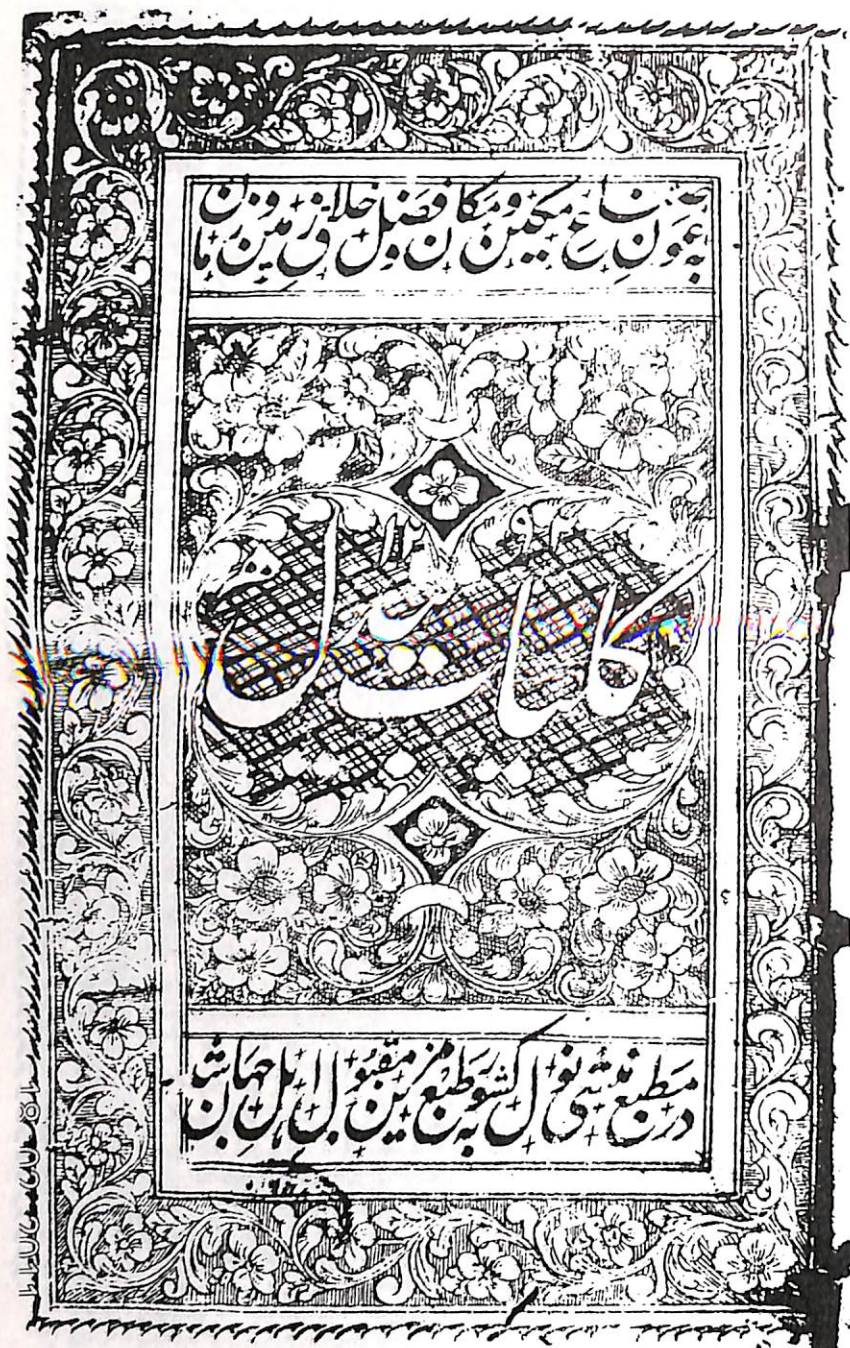 بعون صناع مکین و مکان و فضل خلاق زمین و زمان
۱۲۹۲
کلیات بیدل
در مطبع منشی نولکشور بطبع مزین مقبول اهل جهان شد